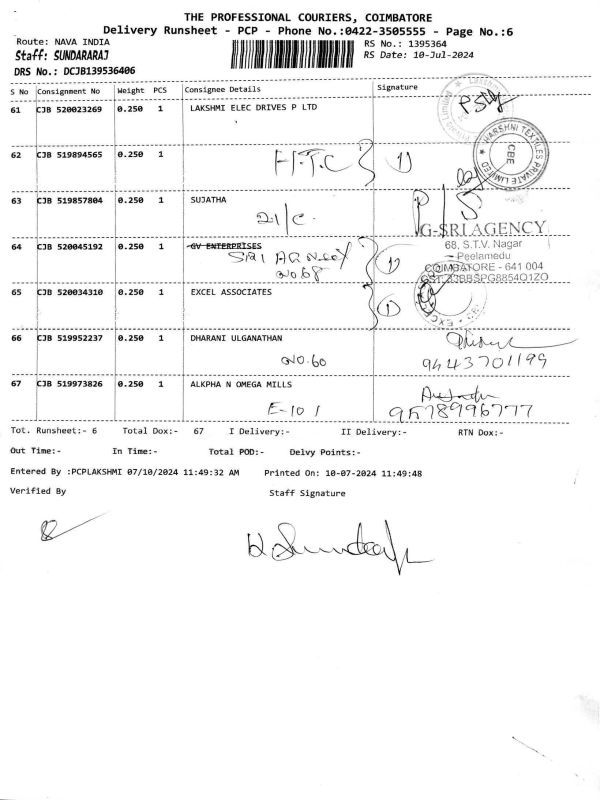 THE PROFESSIONAL COURIERS, COIMBATORE
Delivery Runsheet - PCP - Phone No.:0422-3505555 - Page No.:6
Route: NAVA INDIA RS No.: 1395364
Staff: SUNDARARAJ RS Date: 10-Jul-2024
DRS No.: DCJB139536406
S No Consignment No Weight PCS Consignee Details Signature
61 CJB 520023269 0.250 1 LAKSHMI ELEC DRIVES P LTD
HARSHNI TEXTILES PRIVATE LIMITED CBE
62 CJB 519894565 0.250 1
H.T.C 1)
63 CJB 519857804 0.250 1 SUJATHA
21/C.
G-SRI AGENCY
64 CJB 520045192 0.250 1 GV ENTERPRISES 68, S.T.V. Nagar
Peelamedu
No 68 1) COIMBATORE - 641 004
GST:33BBSPG8854Q1ZO
65 CJB 520034310 0.250 1 EXCEL ASSOCIATES 1)
66 CJB 519952237 0.250 1 DHARANI ULGANATHAN
NO. 60 9443701199
67 CJB 519973826 0.250 1 ALKPHA N OMEGA MILLS
E-101 9578996777
Tot. Runsheet:- 6 Total Dox:- 67 I Delivery:- II Delivery:- RTN Dox:-
Out Time:- In Time:- Total POD:- Delvy Points:-
Entered By :PCPLAKSHMI 07/10/2024 11:49:32 AM Printed On: 10-07-2024 11:49:48
Verified By Staff Signature